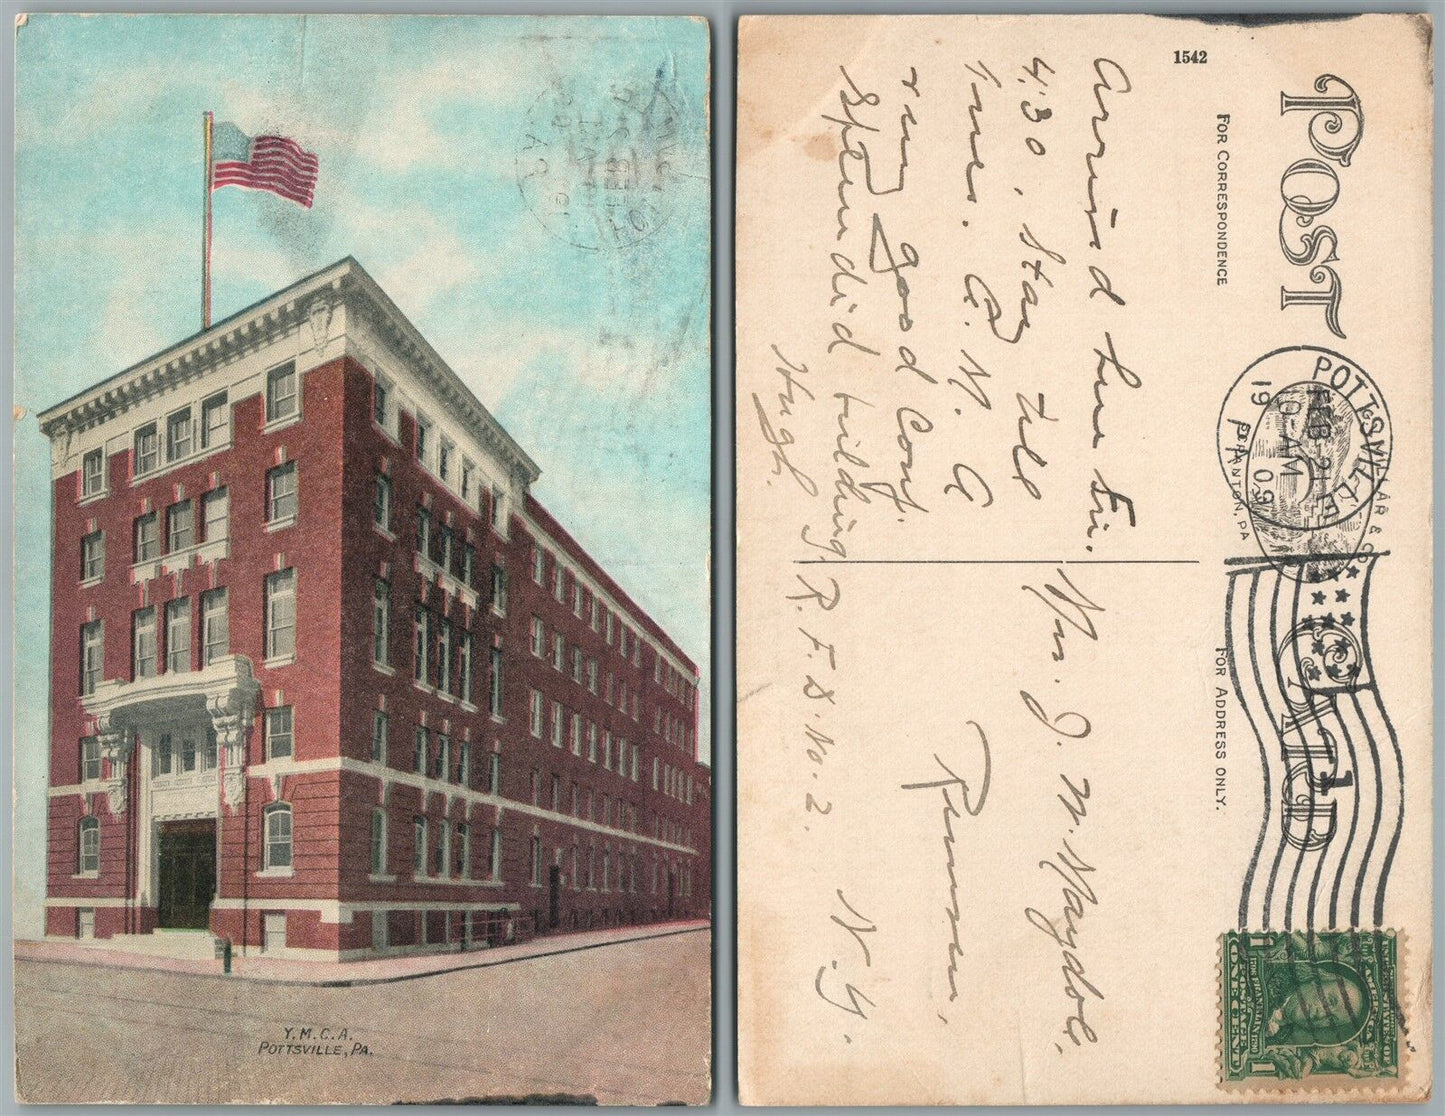 Y. M. C. A.
POTTSVILLE, PA.
1542
POST CARD
FOR CORRESPONDENCE
FOR ADDRESS ONLY.
POTTSVILLE
FEB 21
10-AM
19 09
PA.
SCRANTON, PA
1
Arrived here Fri.
4:30, stay till
Tues. Y. M. C. A
run good Conf.
Splendid building.
Hugh.
Mrs. J. W. Maydole.
Remsen,
N. Y.
R. F. D. No. 2.
ONE CENT
1
1